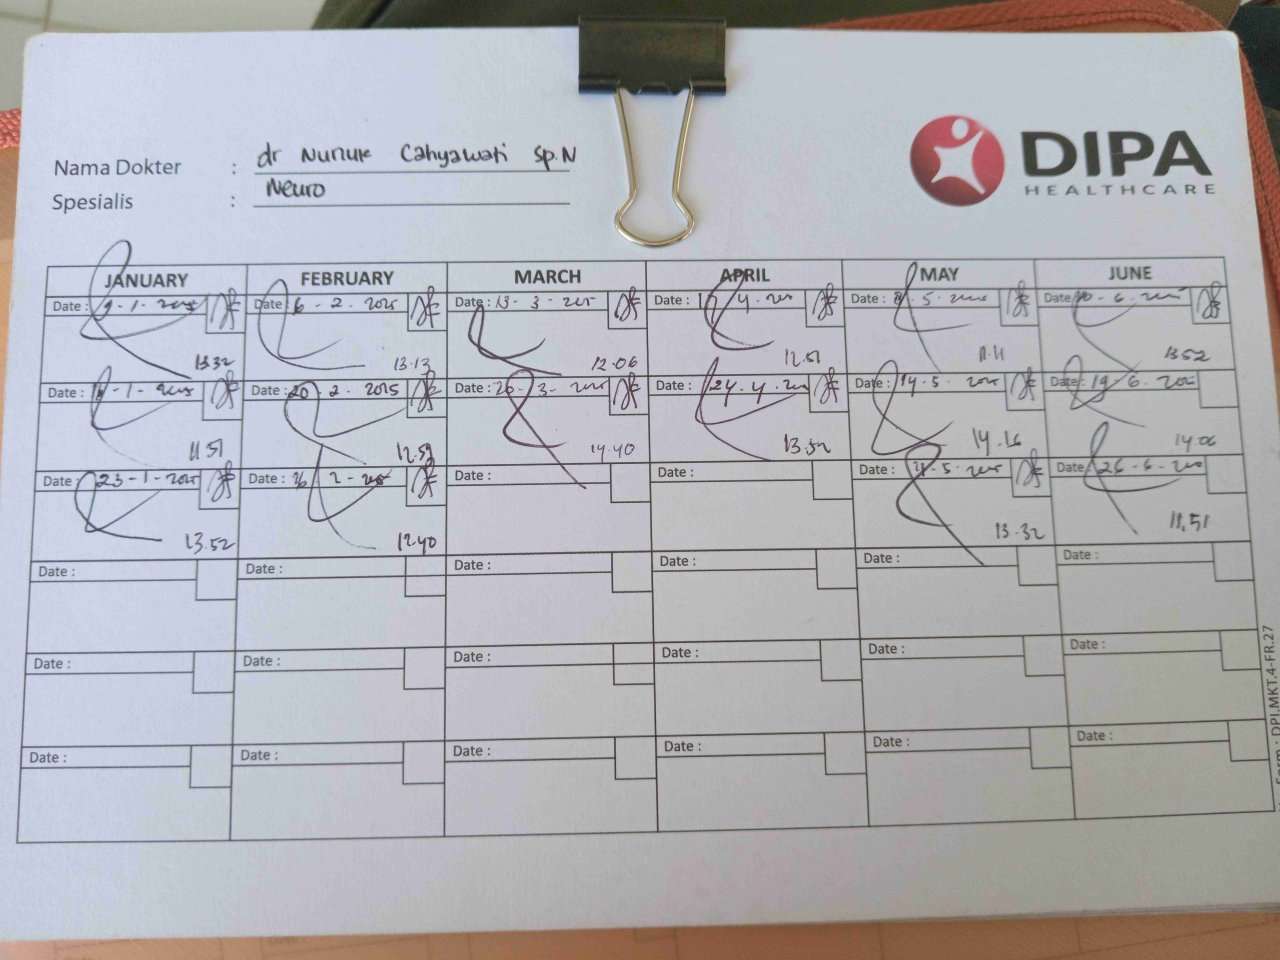 DIPA
HEALTHCARE
Nama Dokter : dr Nunuk Cahyawati Sp.N
Spesialis : Neuro
JANUARY FEBRUARY MARCH APRIL MAY JUNE
Date : 9-1-2025 Date : 6-2-2025 Date : 13-3-2025 Date : 4-2025 Date : 8-5-2025 Date : 10-6-2025
13.32 13.13 12.06 12.51 11.11 13.52
Date : -1-2025 Date : 20-2-2025 Date : 20-3-2025 Date : 24.4.2025 Date : 14-5-2025 Date : 19-6-2025
11.51 12.59 14.40 13.52 14.16 14.06
Date : 23-1-2025 Date : 26-2-2025 Date : Date : Date : 21-5-2025 Date : 26-6-2025
13.52 12.40 13.32 11.51
Date : Date : Date : Date : Date : Date :
Date : Date : Date : Date : Date : Date :
Date : Date : Date : Date : Date : Date :
Form : DPI.MKT.4-FR.27